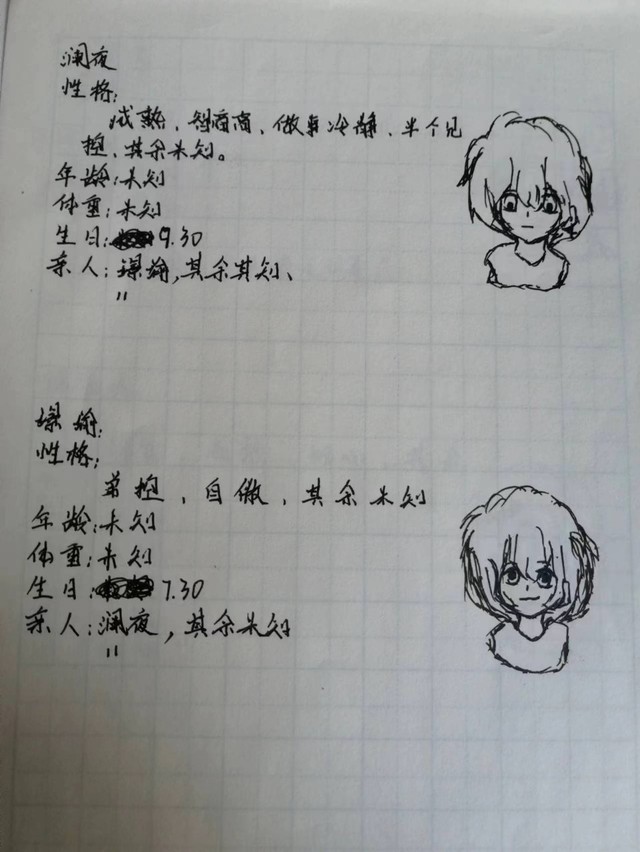 澜夜
性格:
成熟、智商高、做事冷静、半个兄
控、其余未知。
年龄:未知
体重:未知
生日:9.30
亲人:璟瑜,其余其知、
"
璟瑜:
性格:
弟控、自傲、其余未知
年龄:未知
体重:未知
生日:7.30
亲人:澜夜,其余未知
"